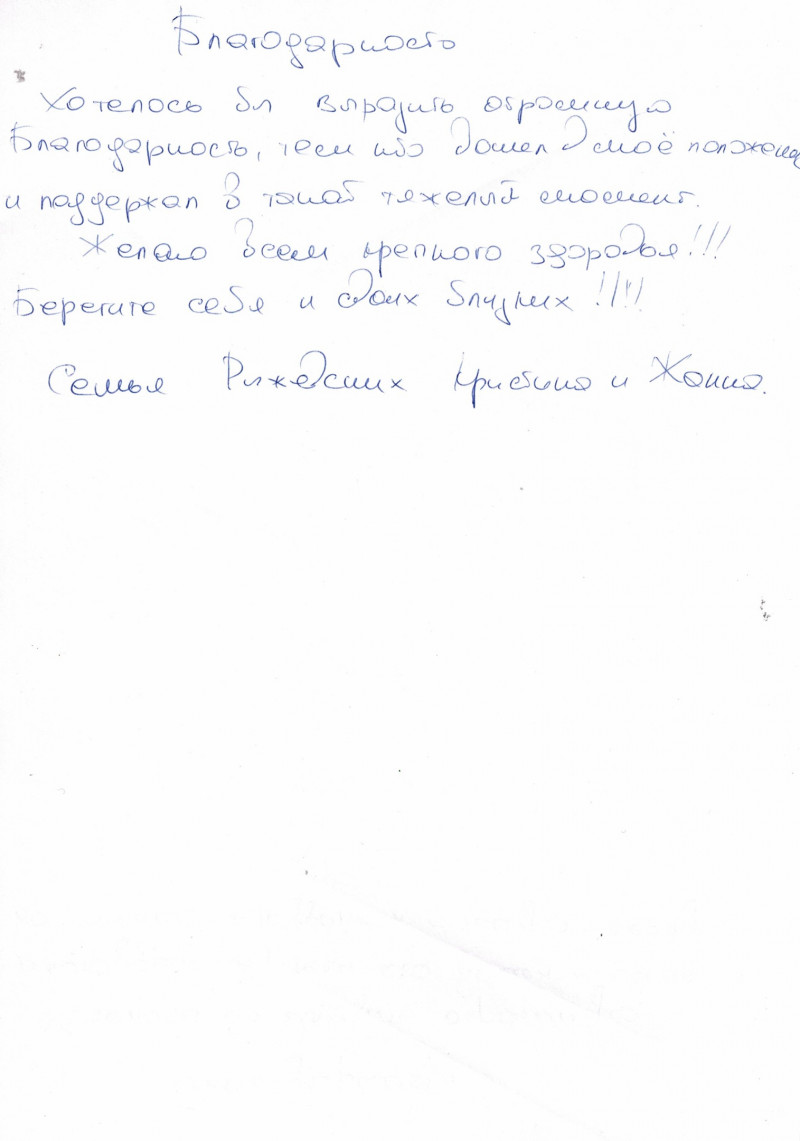 Благодарность
Хотелось бы выразить огромную
Благодарность, тем кто вошел в моё положение
и поддержал в такой тяжелый момент.
Желаю всем крепкого здоровья!!!
Берегите себя и своих близких!!!!
Семья Ряжевских Кристина и Жанна.